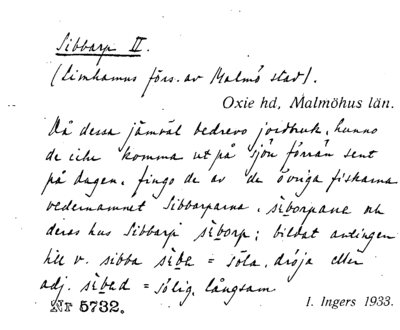 Sibbarp II.
(Limhamns förs. av Malmö stad).
Oxie hd, Malmöhus län.
Då dessa jämväl bedrevo jordbruk, hunno
de icke komma ut på sjön förrän sent
på dagen, fingo de av de övriga fiskarna
vedernamnet Sibbarparna, siborpana och
deras hus Sibbarp siborp; bildat antingen
till v. sibba sibe = söla, dröja eller
adj. sibed = sölig, långsam
Nr 5732.
I. Ingers 1933.